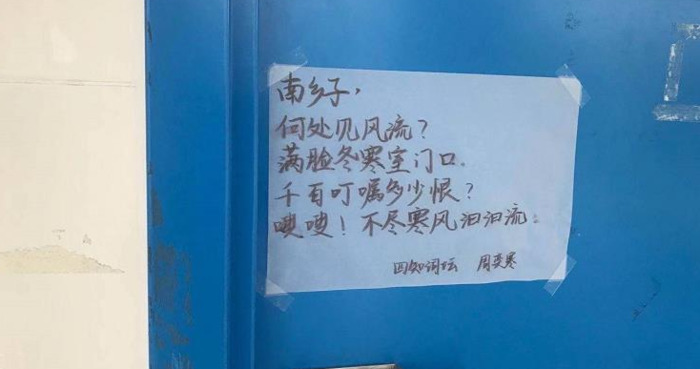 南乡子,
何处见风流?
满脸冬寒室门口.
千百叮嘱多少恨?
嗖嗖!不尽寒风汩汩流.
周奕寒